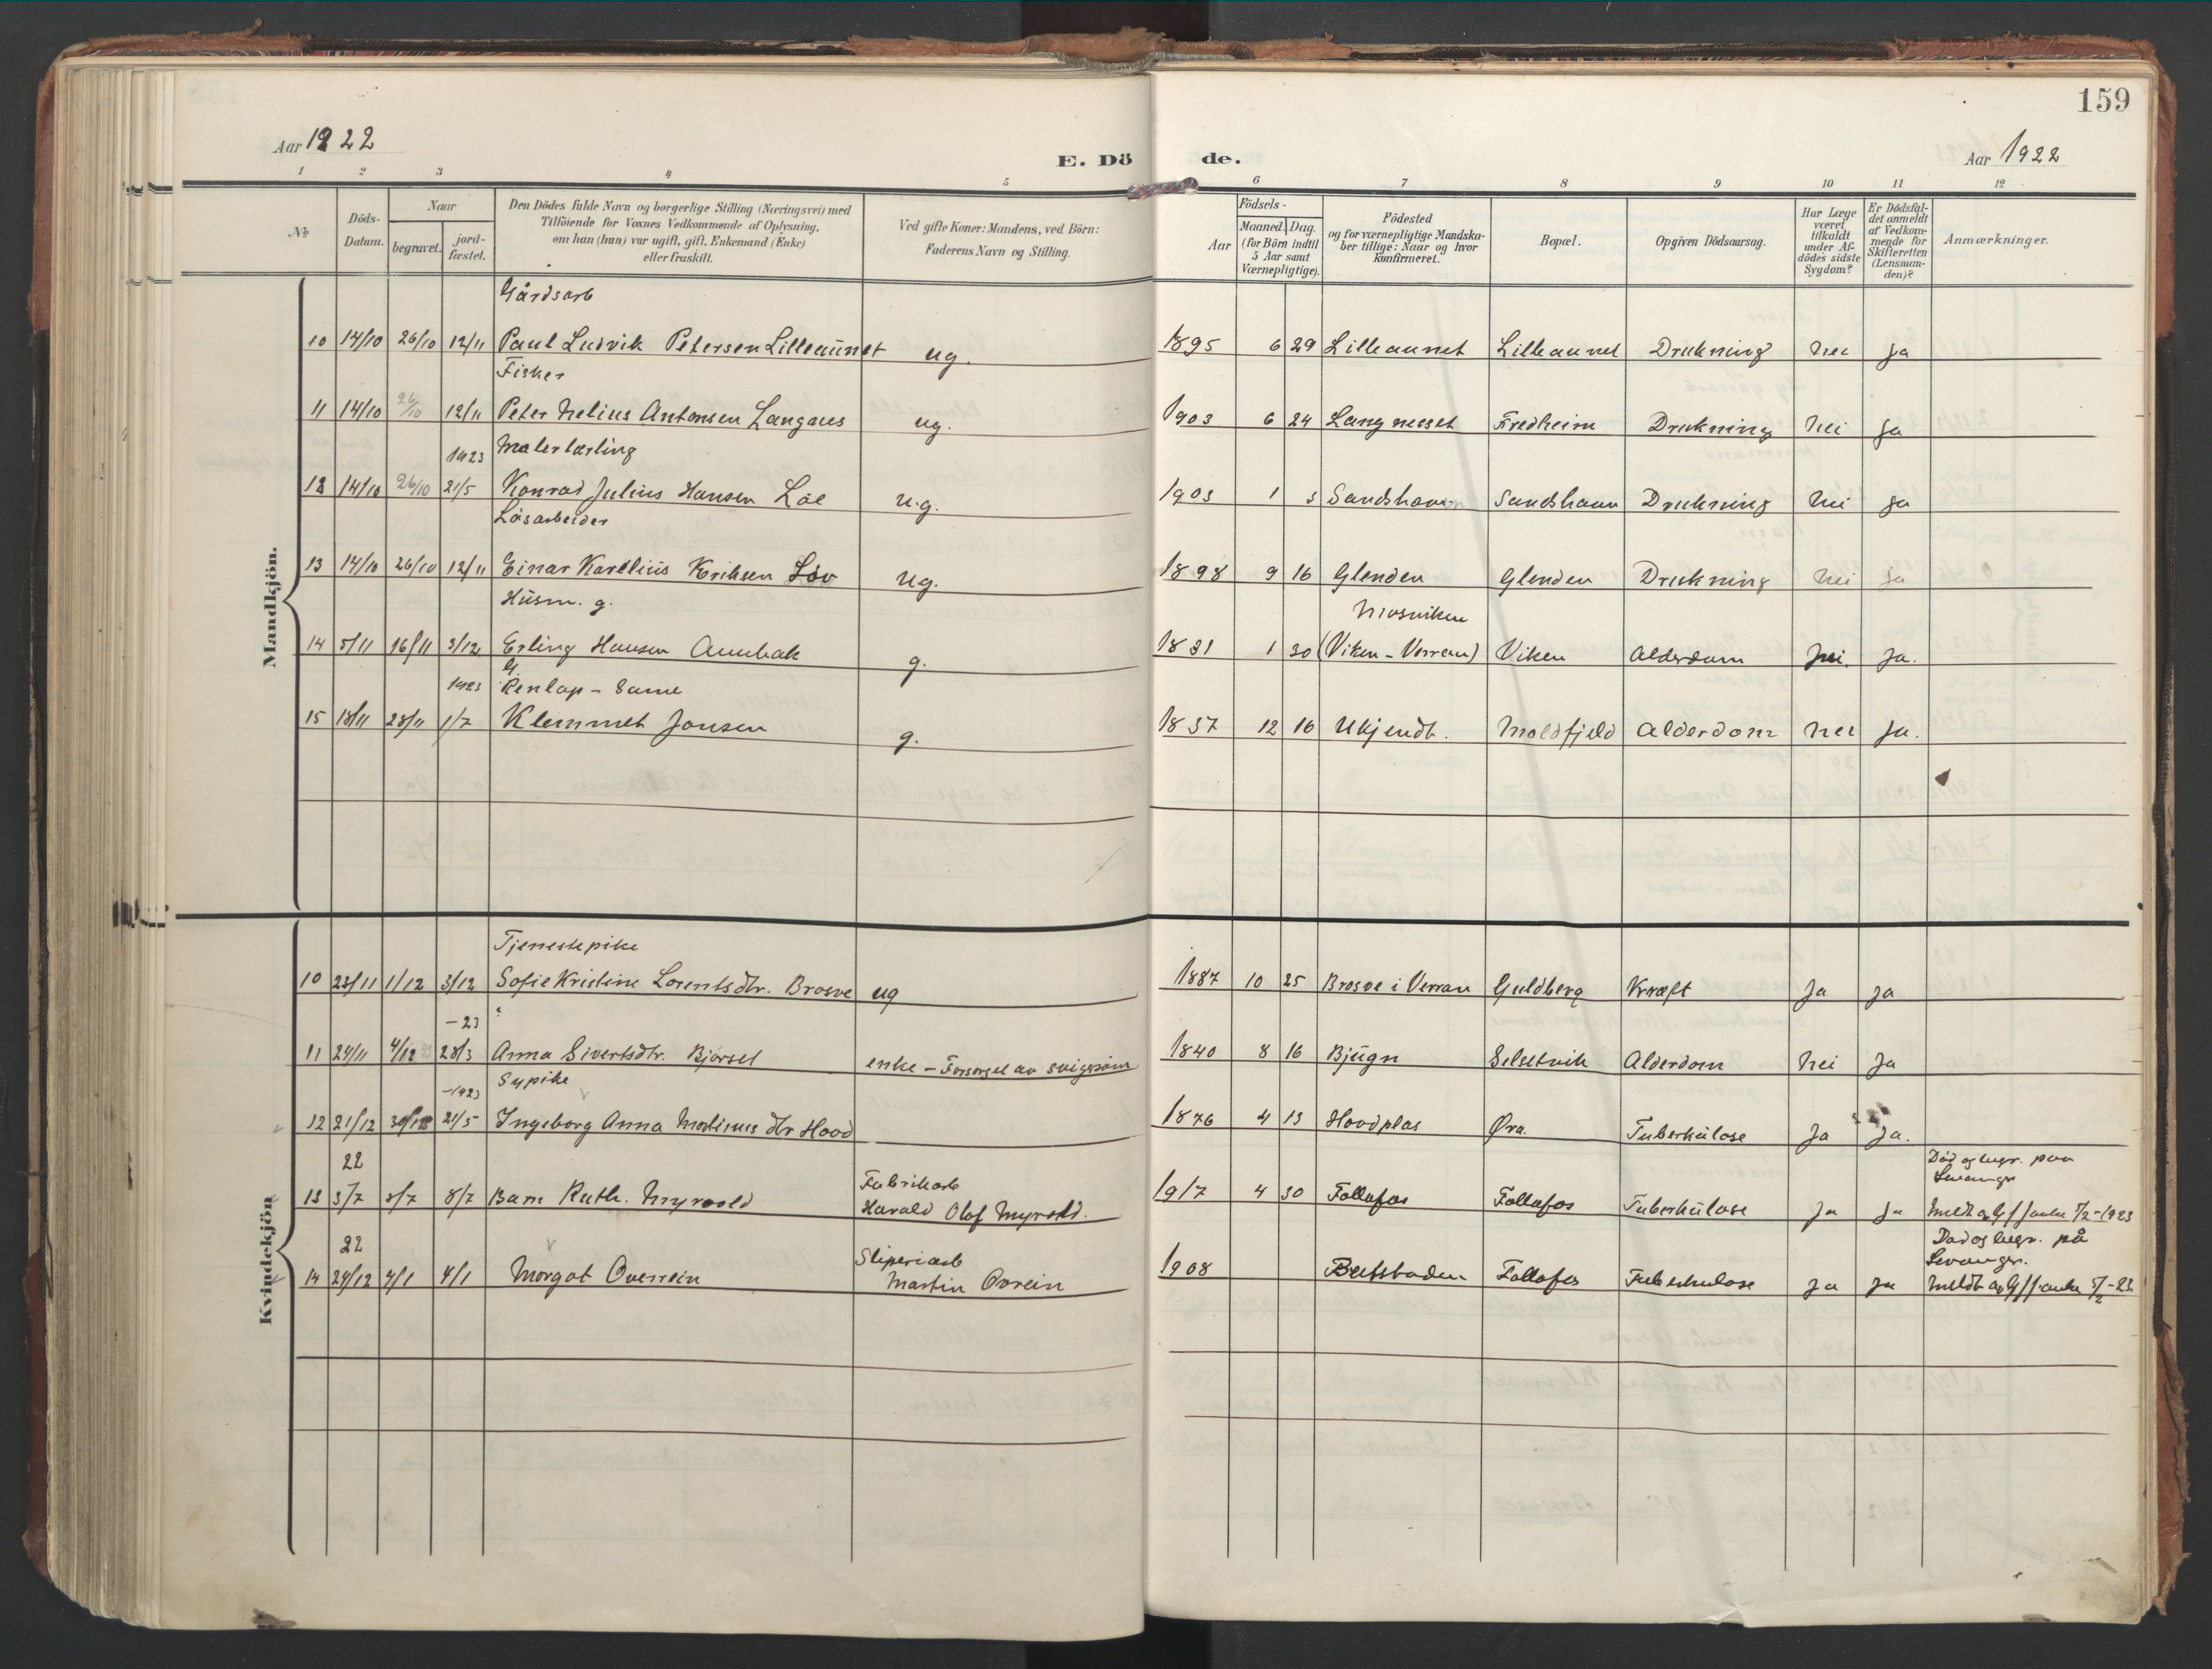 159
Aar 1922
E. Dö de.
Aar 1922
1 2 3 4 5 6 7 8 9 10 11 12
№
Döds-Datum.
Naar
begravet.
jord-fæstet.
Den Dödes fulde Navn og borgerlige Stilling (Næringsvei) med
Tilföiende for Voxnes Vedkommende af Oplysning,
om han (hun) var ugift, gift, Enkemand (Enke)
eller fraskilt.
Ved gifte Koner: Mandens, ved Börn:
Faderens Navn og Stilling.
Födsels-
Aar
Maaned. Dag.
(for Börn indtil
5 Aar samt
Værnepligtige).
Födested
og for værnepligtige Mandska-
ber tillige: Naar og hvor
Konfirmeret.
Bopæl.
Opgiven Dödsaarsag.
Har Læge
været
tilkaldt
under Af-
dödes sidste
Sygdom?
Er Dödsfal-
det anmeldt
af Vedkom-
mende for
Skifteretten
(Lensman-
den)?
Anmærkninger.
Mandkjön.
Gårdsarb
10 14/10 26/10 12/11 Paul Ludvik Petersen Lilleaunet ug. 1895 6 29 Lilleaunet Lilleaunet Drukning Nei Ja
Fisker
11 14/10 26/10 12/11 Peter Nelius Antonsen Langnes ug. 1903 6 24 Langnesset Fredheim Drukning Nei Ja
1923 Malerlærling
12 14/10 26/10 21/5 Konrad Julius Hansen u.g. 1903 1 3 Sandshavn Sandshavn Drukning Nei Ja
Løsarbeider
13 14/10 26/10 12/11 Einar Karelius Eriksen Løv ug. 1898 9 16 Glenden Glenden Drukning Nei Ja
Husm. g. Mosviken
14 5/11 16/11 3/12 Erling Hansen g. 1831 1 30 (Viken - Verran) Viken Alderdom Nei. Ja.
1923 Renlap - Same
15 18/11 28/11 1/7 Klemmet Jonsen g. 1837 12 16 Ukjendt. Moldfjeld Alderdom Nei Ja.
Kvindekjön
Tjenestepike
10 23/11 1/12 3/12 Sofie Kristine Lorentsdtr. Brosve ug 1887 10 25 Brosve i Verran Guldberg Kræft Ja Ja
-23
11 24/11 4/12 28/3 Anna Sivertsdtr. Bjørsel enke - Forsørget av svigersøn 1840 8 16 Bjugn Selsetvik Alderdom Nei Ja
-1923 Sypike
12 21/12 30/12 21/5 Ingeborg Anna dtr Hood 1876 4 13 Hoodplas Øra. Tuberkulose Ja Ja.
22 Fabrikarb Død og begr. paa
Levanger
13 3/7 8/7 8/7 Barn Ruth. Myrvold Harald Olof Myrvold. 1917 4 30 Follafos Follafos Tuberkulose Ja Ja 5/2-1923
22 Sliperiarb Død og begr. på
Levanger.
14 24/12 4/1 4/1 Morgot Overrein Martin Ovrein 1908 Beitstaden Follafos Tuberkulose Ja Ja 5/2-23.